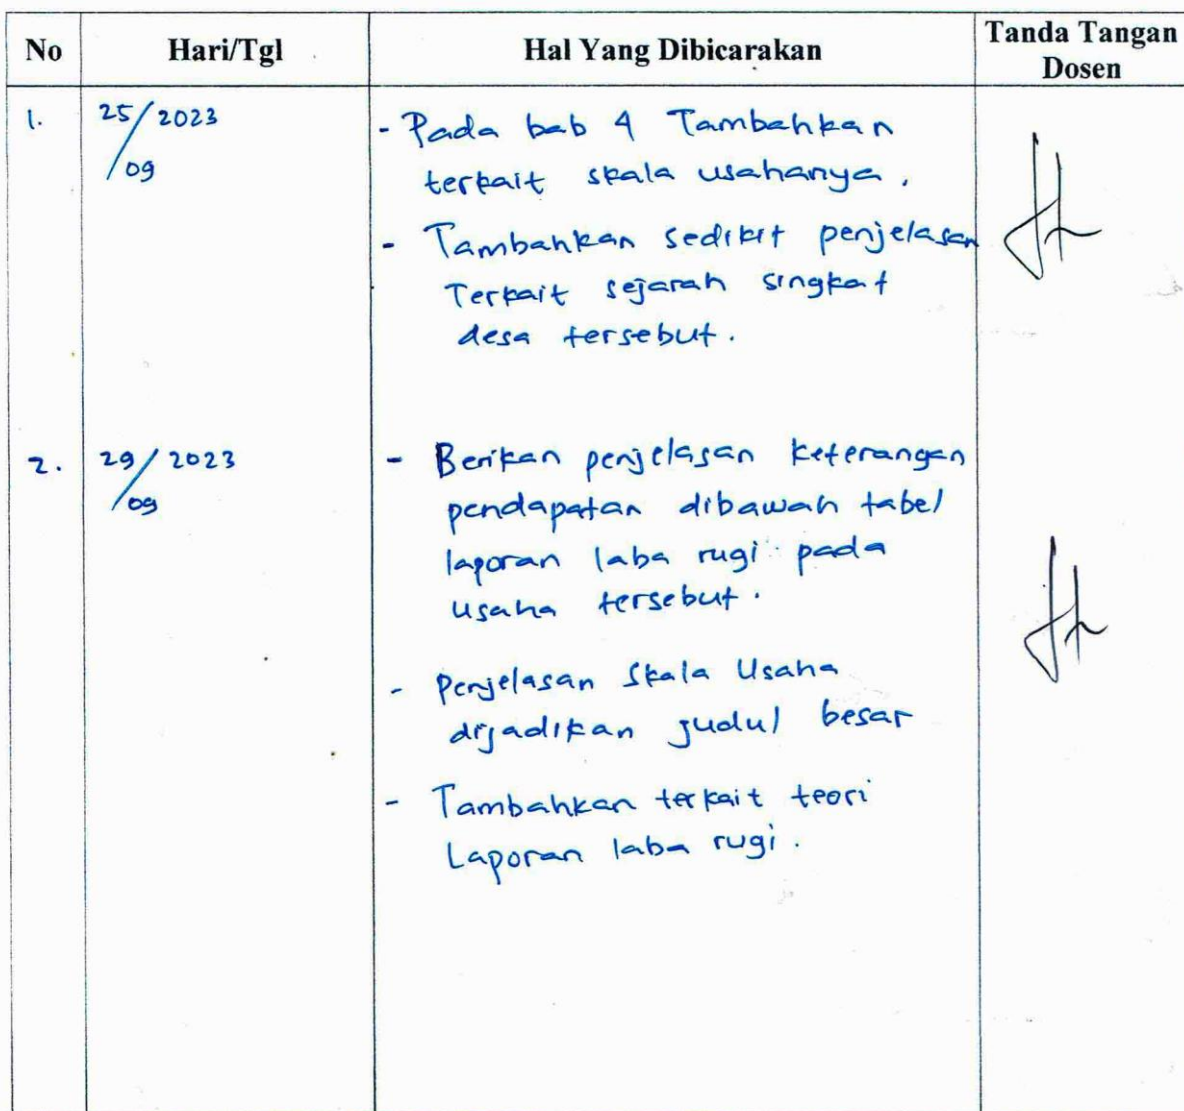 No Hari/Tgl Hal Yang Dibicarakan Tanda Tangan Dosen
1. 25/09 2023 - Pada bab 4 Tambahkan
terkait skala usahanya.
- Tambahkan sedikit penjelasan
Terkait sejarah singkat
desa tersebut.
2. 29/09 2023 - Berikan penjelasan keterangan
pendapatan dibawah tabel
laporan laba rugi pada
usaha tersebut.
- Penjelasan Skala Usaha
dijadikan judul besar
- Tambahkan terkait teori
Laporan laba rugi.